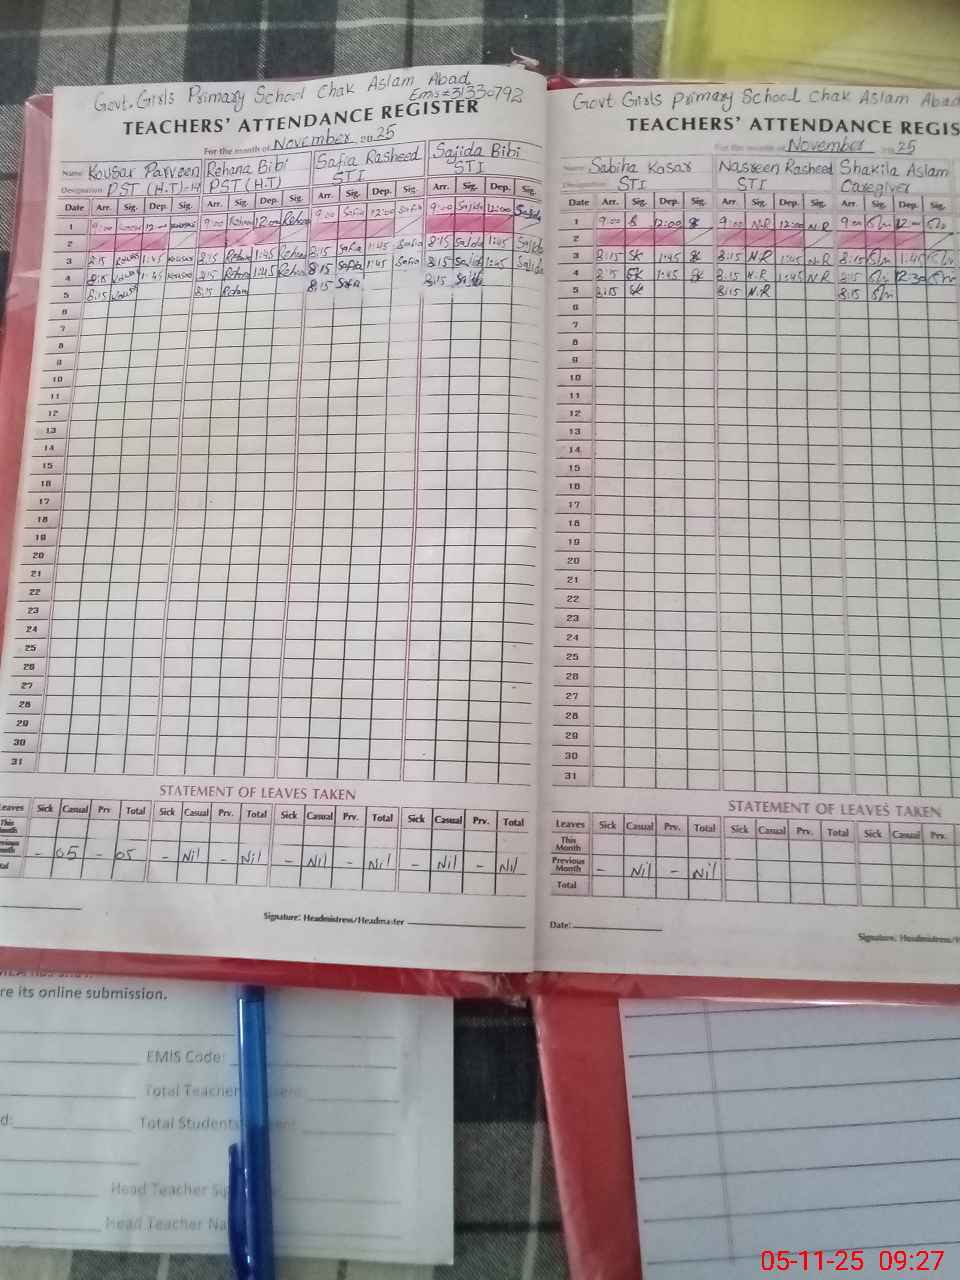 Govt. Girls Primary School Chak Aslam Abad
Emis #31330792
TEACHERS' ATTENDANCE REGISTER
For the month of November 20 25
Name Kousar Parveen Rehana Bibi Safia Rasheed Sajida Bibi
Designation PST (H.T) PST (H.T) STI STI
Date Arr. Sig. Dep. Sig. Arr. Sig. Dep. Sig. Arr. Sig. Dep. Sig. Arr. Sig. Dep. Sig.
1 9:00 Kousar 12:00 Kousar 9:00 Rehana 12:00 Rehana 9:00 Safia 12:00 Safia 9:00 Sajida 12:00 Sajida
2
3 8:15 Kousar 1:45 Kousar 8:15 Rehana 1:45 Rehana 8:15 Safia 1:45 Safia 8:15 Sajida 1:45 Sajida
4 8:15 Kousar 1:45 Kousar 8:15 Rehana 1:45 Rehana 8:15 Safia 1:45 Safia 8:15 Sajida 1:45 Sajida
5 8:15 Kousar 8:15 Rehana 8:15 Safia 8:15 Sajida
6
7
8
9
10
11
12
13
14
15
16
17
18
19
20
21
22
23
24
25
26
27
28
29
30
31
STATEMENT OF LEAVES TAKEN
Leaves Sick Casual Prv. Total Sick Casual Prv. Total Sick Casual Prv. Total Sick Casual Prv. Total
This Month
Previous Month - 05 - 05 - Nil - Nil - Nil - Nil - Nil - Nil
Total
Signature: Headmistress/Headmaster
Govt Girls Primary School Chak Aslam Abad
TEACHERS' ATTENDANCE REGIS
For the month of November 20 25
Name Sabiha Kosar Nasreen Rasheed Shakila Aslam
Designation STI STI Caregiver
Date Arr. Sig. Dep. Sig. Arr. Sig. Dep. Sig. Arr. Sig. Dep. Sig.
1 9:00 12:00 9:00 N.R 12:00 N.R 9:00 12:00
2
3 8:15 SK 1:45 SK 8:15 N.R 1:45 N.R 8:15 1:45
4 8:15 SK 1:45 SK 8:15 N.R 1:45 N.R 8:15 12:30
5 8:15 SK 8:15 N.R 8:15
6
7
8
9
10
11
12
13
14
15
16
17
18
19
20
21
22
23
24
25
26
27
28
29
30
31
STATEMENT OF LEAVES TAKEN
Leaves Sick Casual Prv. Total Sick Casual Prv. Total Sick Casual Prv.
This Month
Previous Month - Nil - Nil
Total
Date:
Signature: Headmistress/H
re its online submission.
EMIS Code:
Total Teacher
d: Total Students
Head Teacher
Head Teacher
05-11-25 09:27